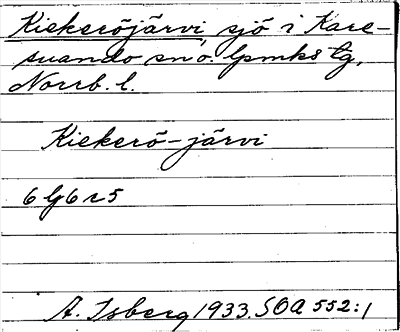 Kiekeröjärvi, sjö i Kare-
suando sn o. lpmks tg,
Norrb. l.
Kiekerö-järvi
A. Isberg 1933. SOA 552:1